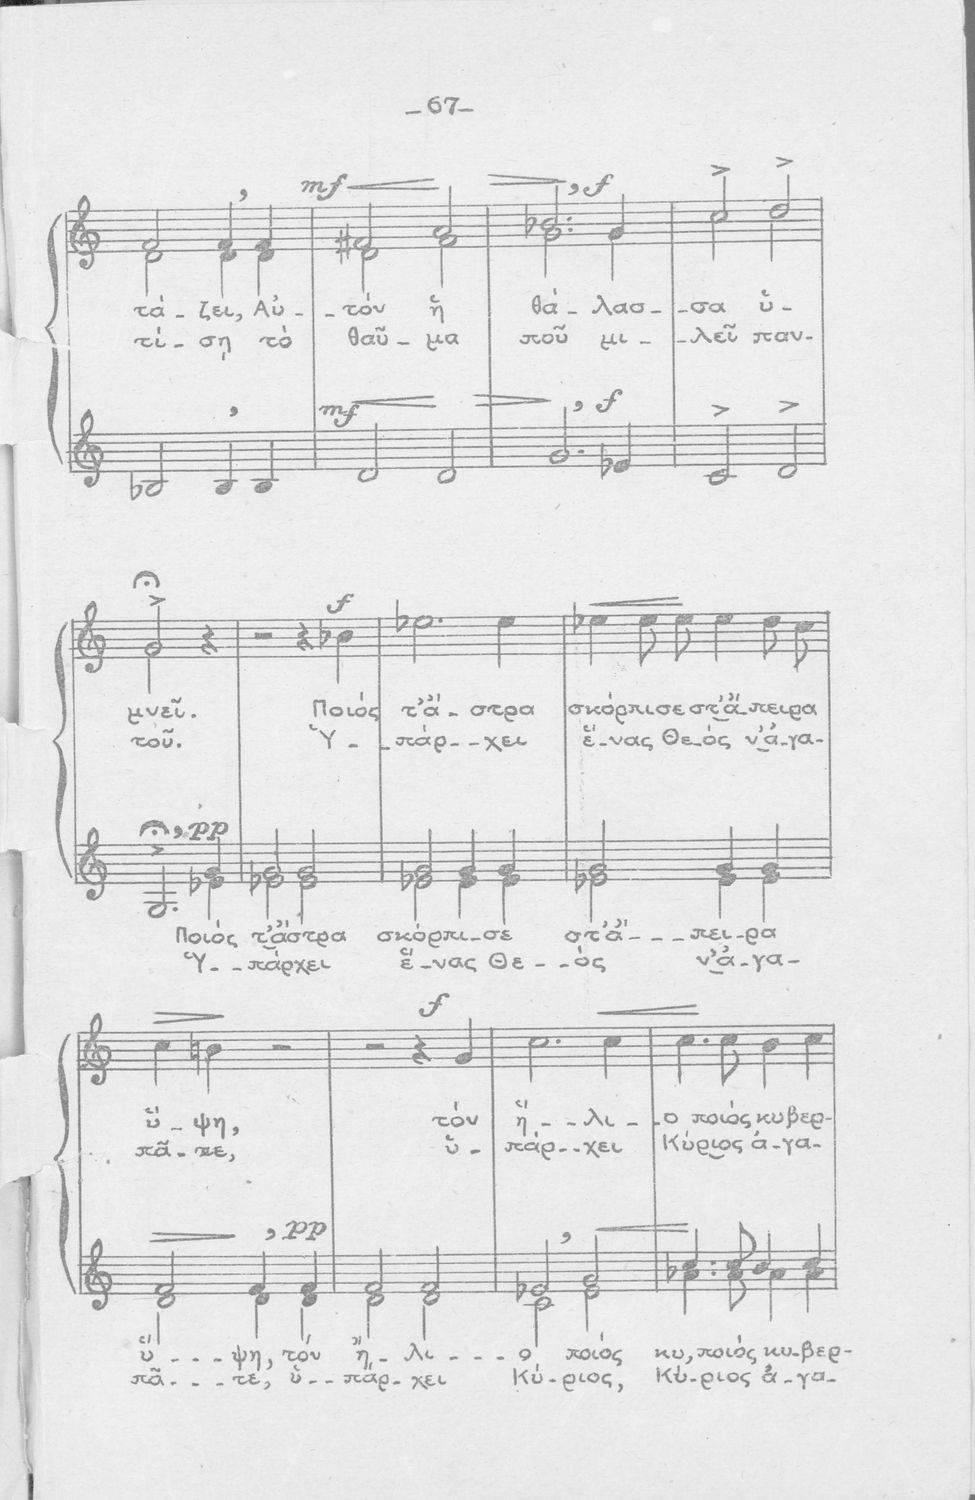 _67_
mf , f
τά - ζει, Αὐ - - τόν ἥ θά - λασ - - σα ὑ -
τί - ση τό θαῦ - μα ποῦ μι - - λεῖ παν -
mf , f
f
μνεῖ. Ποιός τ’ἄ - στρα σκόρπισε στ’ἄ - πειρα
τοῦ. Ὑ - - πάρ - - χει ἕ - νας Θε - ός ν’ἀ - γα -
, pp
Ποιός τ’ἄστρα σκόρπι - σε στ’ἄ - - - πει - ρα
Ὑ - - πάρχει ἕ - νας Θε - - ός ν’ἀ - γα -
f
ὕ - ψη, τόν ἥ - - λι - - ο ποιός κυβερ -
πᾶ - τε, ὑ - πάρ - - χει Κύριος ἀ - γα -
, pp
ὕ - - - ψη, τόν ἥ - λι - - - ο ποιός κυ, ποιός κυ - βερ -
πᾶ - - - τε, ὑ - - πάρ - χει Κύ - ριος, Κύ - ριος ἀ - γα -